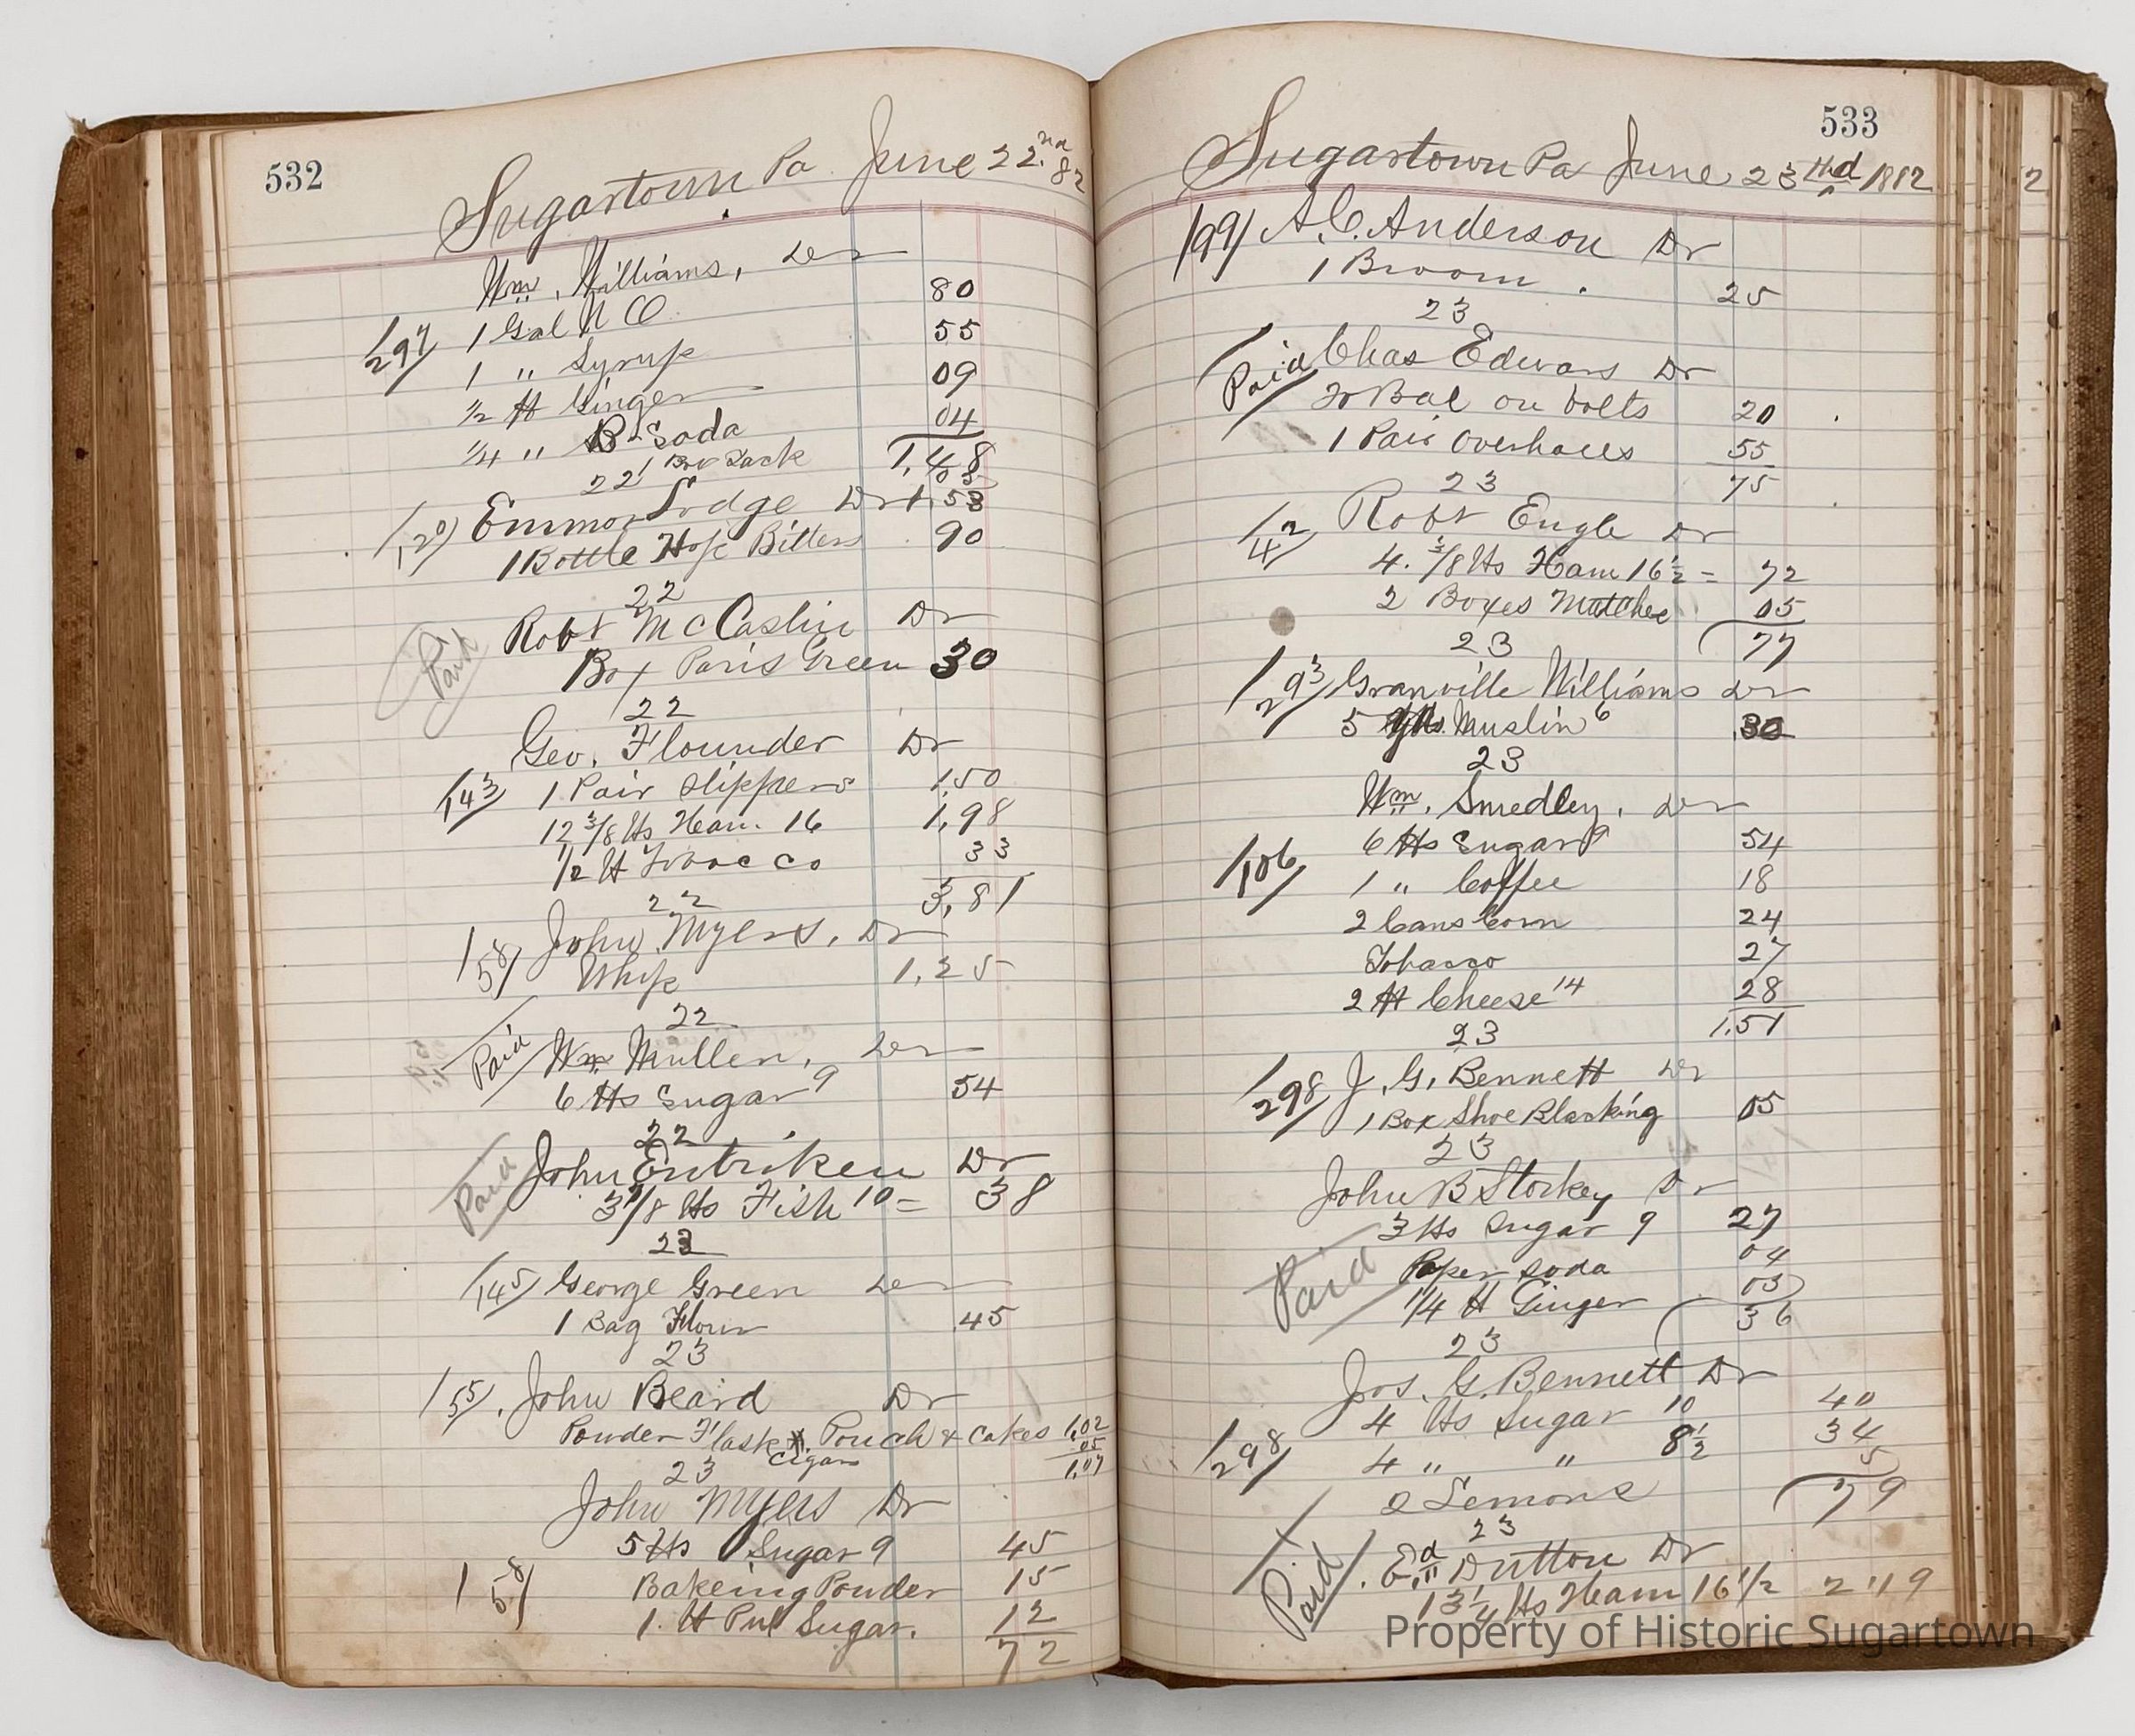 532
Sugartown Pa June 22nd 82
Wm. Williams, Dr
1 Gal N O 80
297 1 " Syrup 55
1/2 lb Ginger 09
1/4 " B Soda 04
1 Box Sack 1,48
22
Emmor Lodge Dr 1.53
120 1 Bottle Hop Bitters 90
22
Robt McCaslin Dr
Paid Box Paris Green 30
22
Geo. Flounder Dr
143 1 Pair Slippers 1.50
12 3/8 lbs Ham. 16 1,98
1/2 lb Tobacco 33
22 3,81
John Myers, Dr
158 Whip 1,25
22
Paid Wm Mullen, Dr
6 lbs Sugar 9 54
22
John Entriken Dr
Paid 3 7/8 lbs Fish 10 = 38
23
145 George Green Dr
1 Bag Flour 45
23
155 John Beard Dr
Powder Flask & Pouch & Cakes 1,02
Cigars 05
23 1,07
John Myers Dr
5 lbs Sugar 9 45
158 Bakeing Powder 15
1. lb Pul Sugar. 12
72
533
Sugartown Pa June 23rd 1882
199 A. C. Anderson Dr
1 Broom. 25
23
Paid Chas Edwars Dr
Bal on bolts 20
1 Pair Overhalls 55
23 75
Robt Engle Dr
42 4. 3/8 lbs Ham 16 1/2 = 72
2 Boxes Matches 05
23 77
293 Granville Williams Dr
5 yds Muslin 6 30
23
Wm. Smedley. Dr
6 lbs Sugar 9 54
106 1 " Coffee 18
2 Cans Corn 24
Tobacco 27
2 lb Cheese 14 28
23 1.51
298 J. G. Bennett Dr
1 Box Shoe Blacking 05
23
John B Storkey Dr
3 lbs Sugar 9 27
Paid Paper Soda 04
1/4 lb Ginger 05
23 36
Jos. G. Bennett Dr
4 lbs Sugar 10 40
298 4 " " 8 1/2 34
2 Lemons 5
23 79
Paid Ed Dutton Dr
13 1/4 lbs Ham 16 1/2 2 19
Property of Historic Sugartown